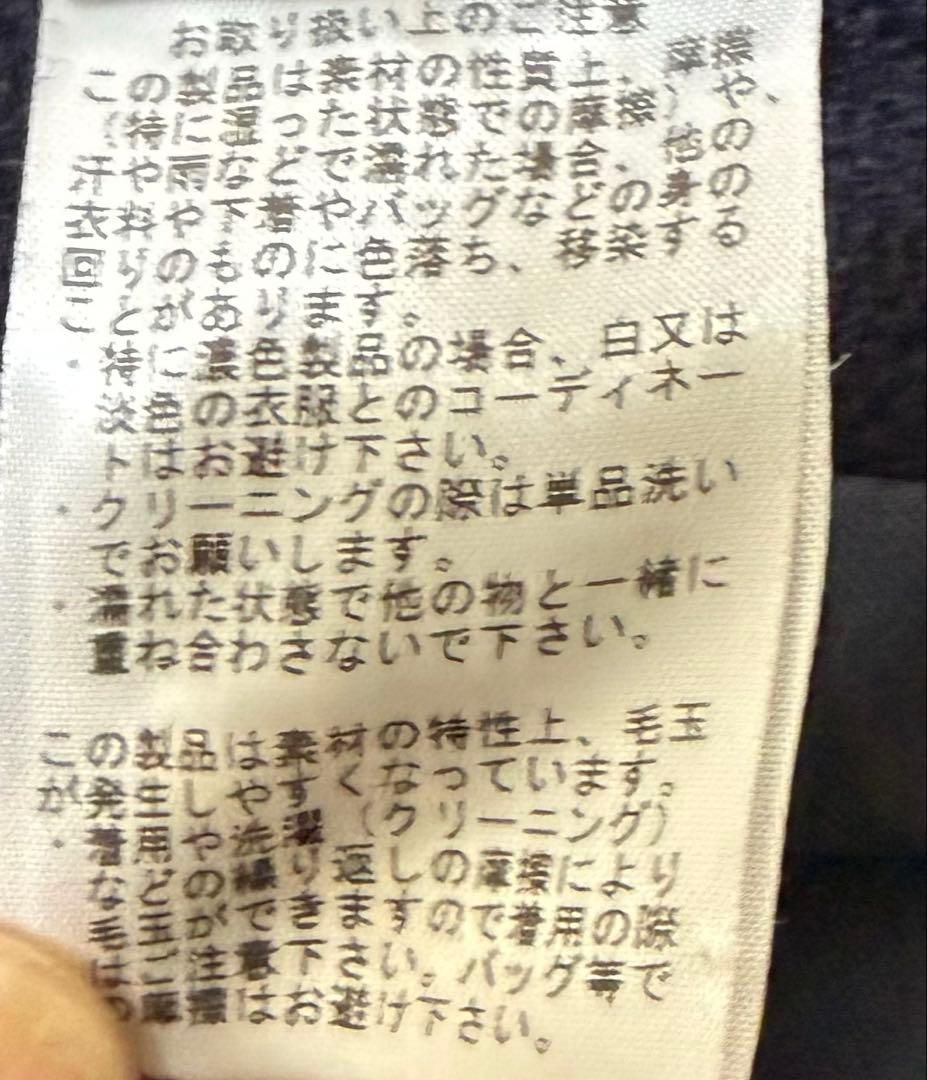 お取り扱い上のご注意
この製品は素材の性質上、摩擦
(特に湿った状態での摩擦)や、
汗や雨などで濡れた場合、他の
衣料や下着やバッグなどの身の
回りのものに色落ち、移染する
ことがあります。
・特に濃色製品の場合、白又は
淡色の衣服とのコーディネー
トはお避け下さい。
・クリーニングの際は単品洗い
でお願いします。
・濡れた状態で他の物と一緒に
重ね合わさないで下さい。
この製品は素材の特性上、毛玉
が発生しやすくなっています。
・着用や洗濯(クリーニング)
などの繰り返しの摩擦により
毛玉ができますので着用の際
ご注意下さい。バッグ等で
の摩擦はお避け下さい。